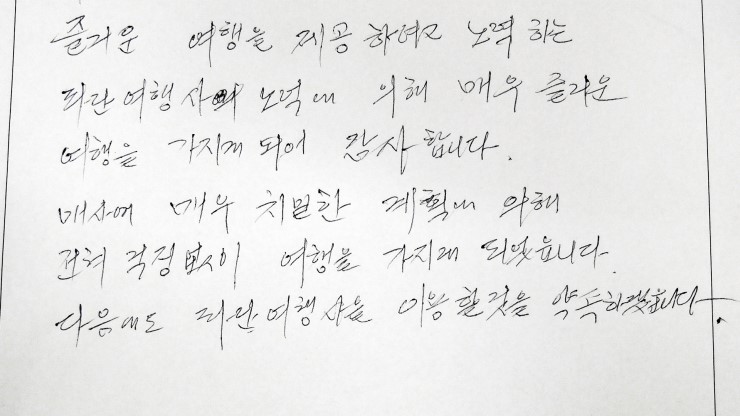 즐거운 여행을 제공 하여고 노력 하는
파란 여행사의 노력에 의해 매우 즐거운
여행을 가지게 되어 감사 합니다.
매사에 매우 치밀한 계획에 의해
전혀 걱정 없이 여행을 가지게 되었읍니다.
다음에도 파란 여행사을 이용할것을 약속하겠읍니다.